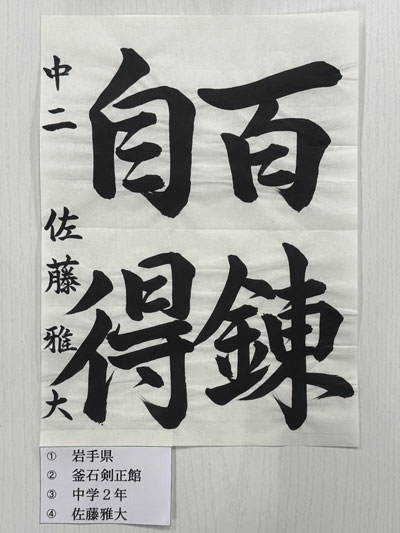 百錬
自得
中二 佐藤雅大
① 岩手県
② 釜石剣正館
③ 中学２年
④ 佐藤雅大